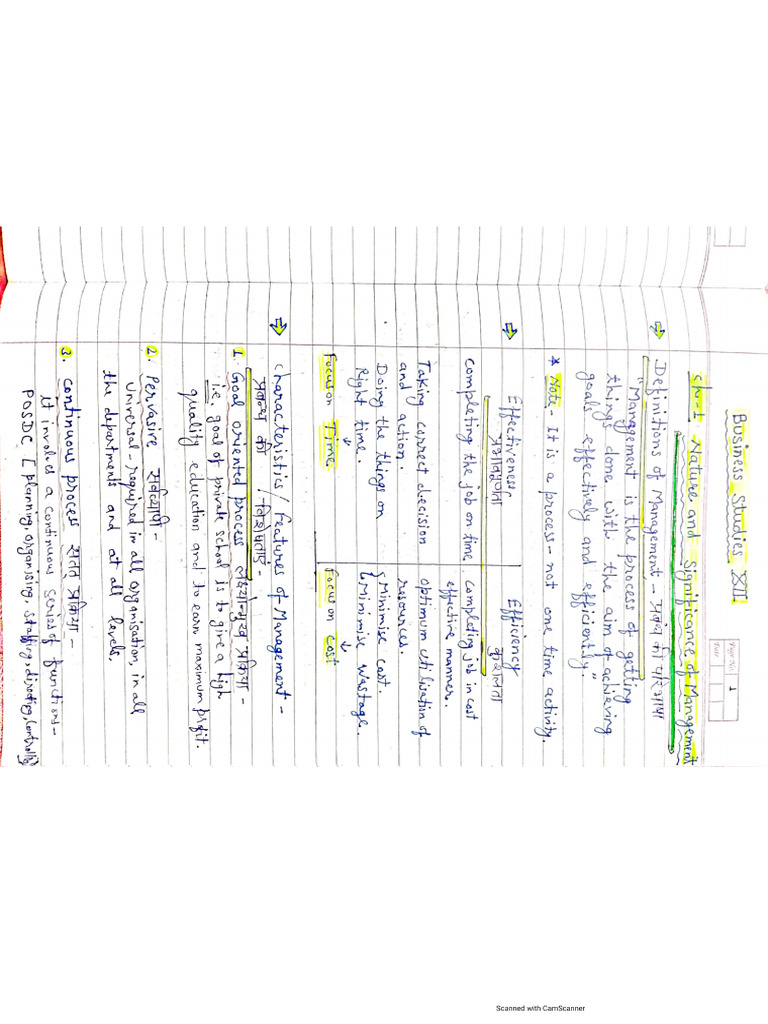 Page No. 1
Date
Business Studies XII
Ch:1 Nature and Significance of Management
Definitions of Management - प्रबंध की परिभाषा
"Management is the process of getting
things done with the aim of achieving
goals effectively and efficiently."
* Note - It is a process - not one time activity.
Effectiveness Efficiency
प्रभावपूर्णता कुशलता
completing the job on time. completing job in cost
effective manner.
Taking correct decision optimum utilisation of
and action. resources.
Doing the things on { Minimise cost.
Right time. { Minimise wastage.
↓ ↓
Focus on Time Focus on cost
Characteristics/Features of Management -
प्रबन्ध की विशेषताऐं -
1. Goal oriented process लक्ष्योन्मुख प्रक्रिया -
i.e. goal of private school is to give a high
quality education and to earn maximum profit.
2. Pervasive सर्वव्यापी -
Universal - required in all organisation, in all
the departments and at all levels.
3. continuous process सतत प्रक्रिया -
it involves a continuous series of functions -
POSDC [planning, organising, staffing, directing, controlling]
Scanned with CamScanner